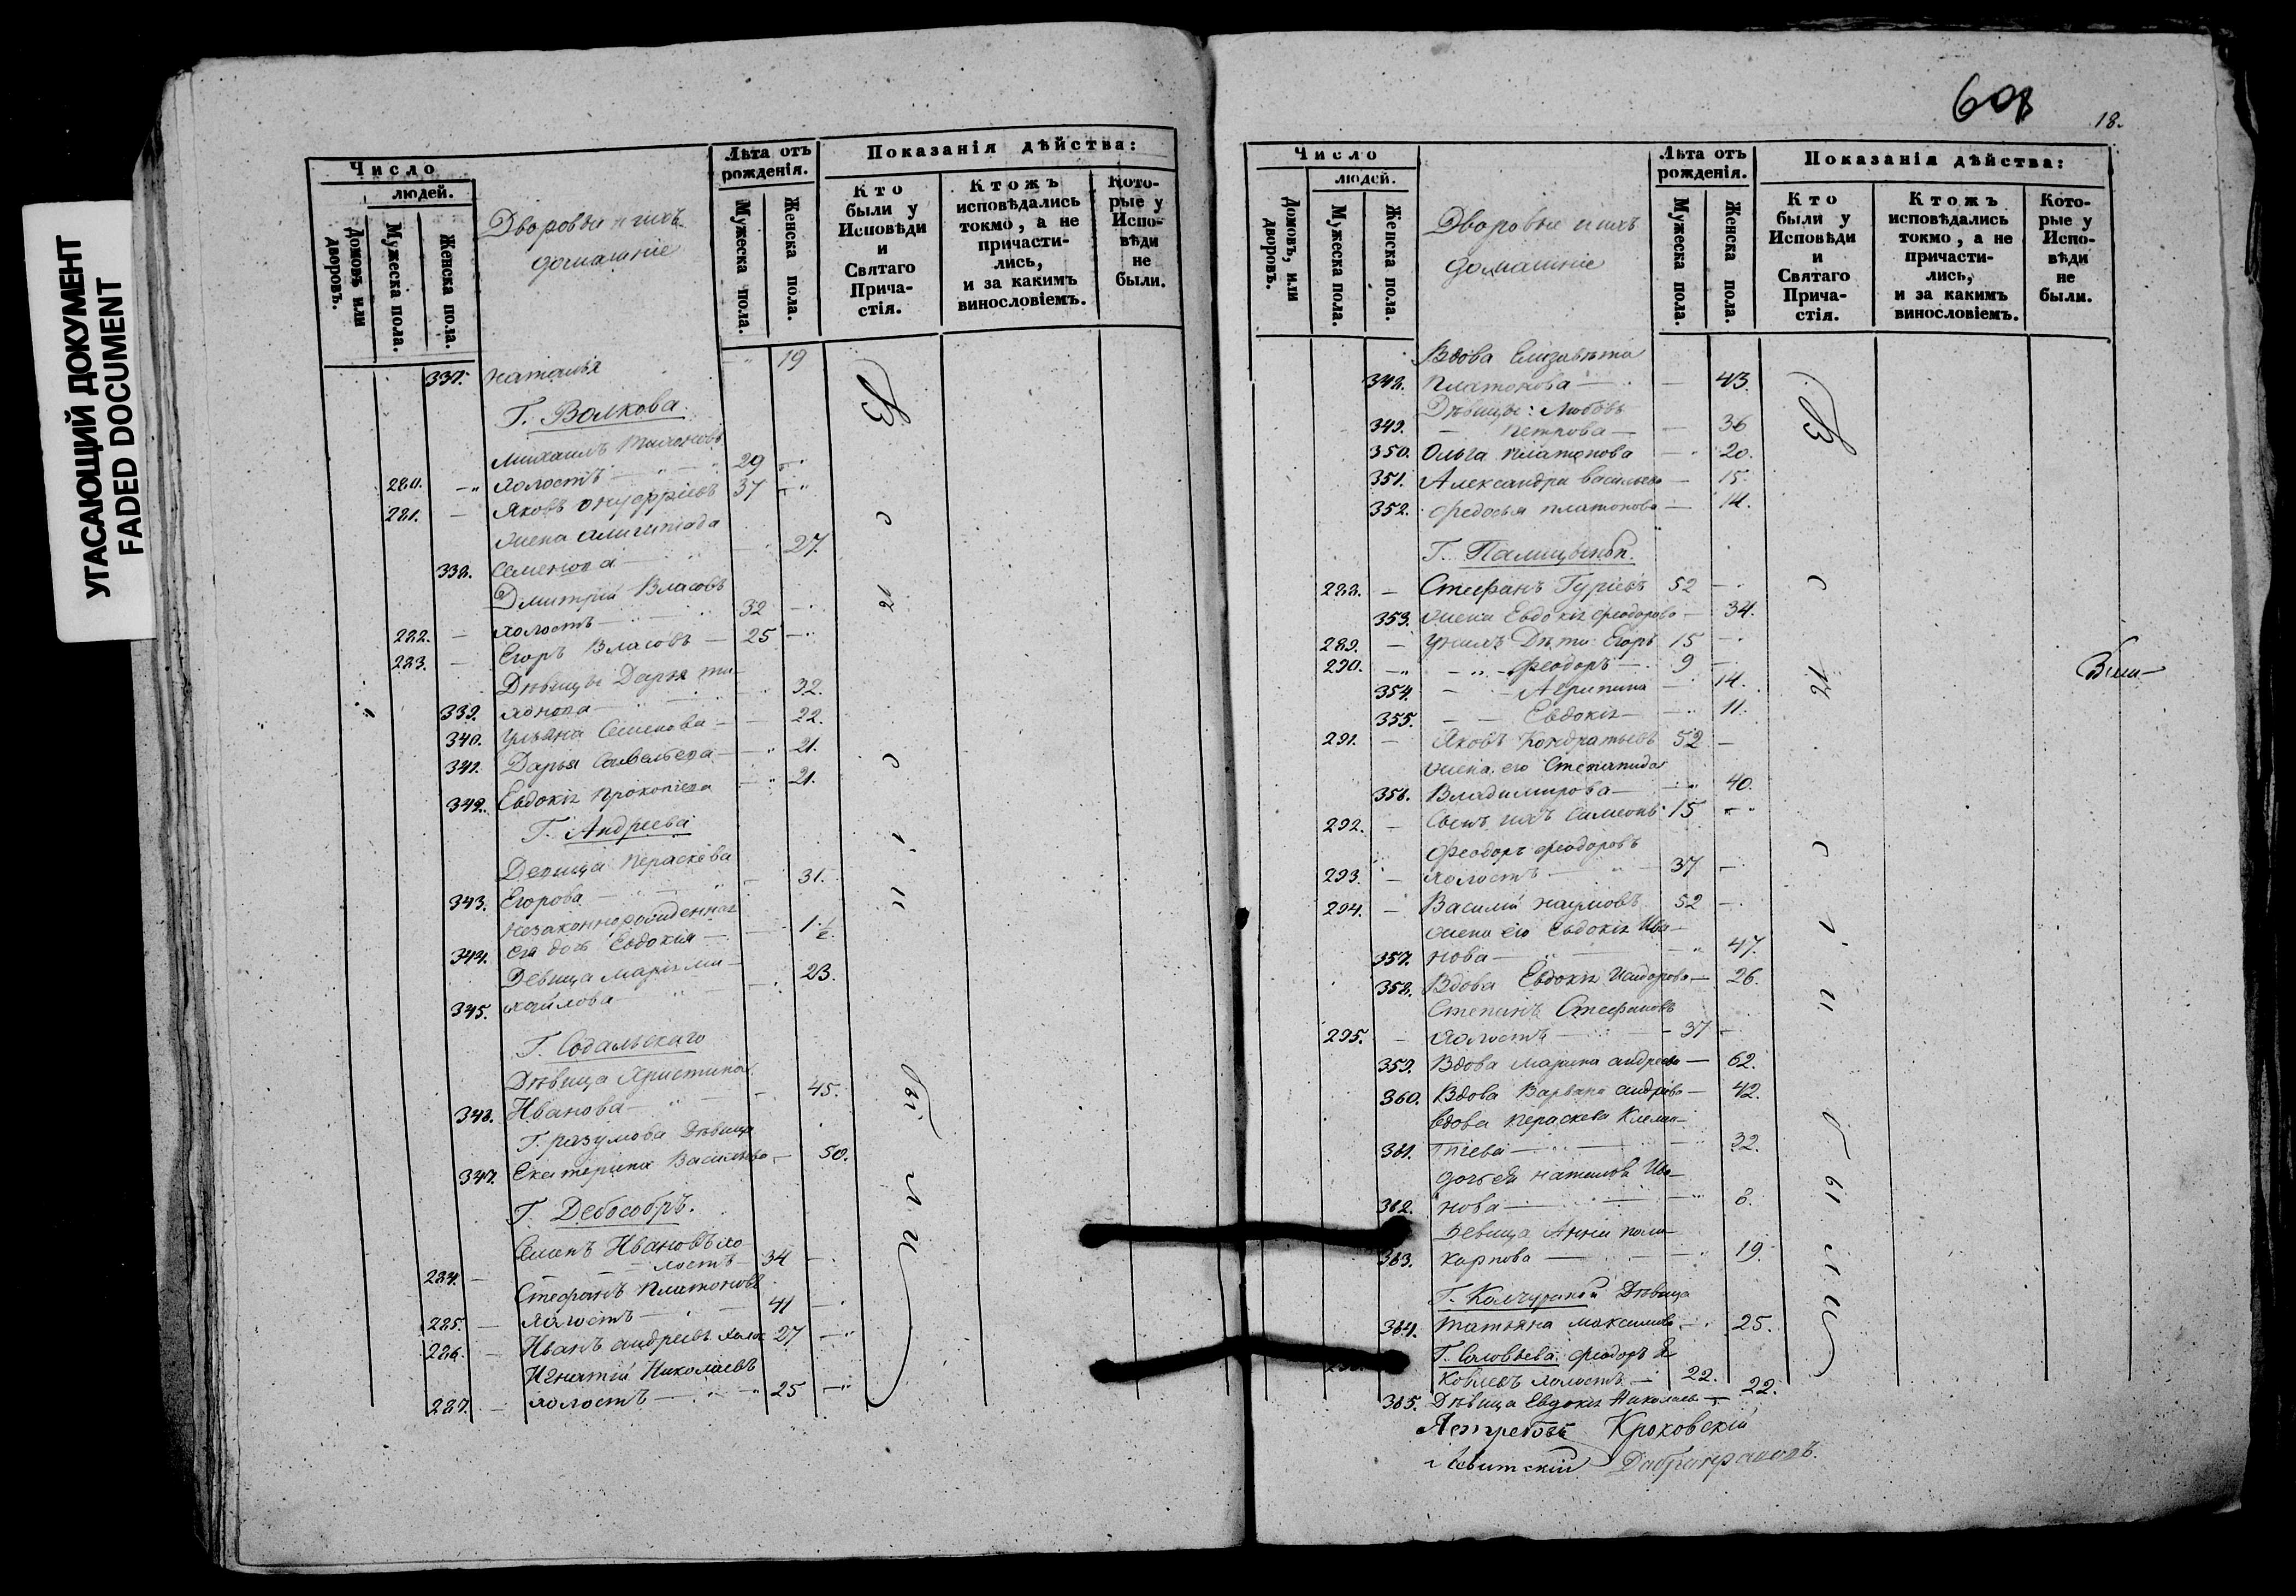 УГАСАЮЩИЙ ДОКУМЕНТ
FADED DOCUMENT
Число
людей.
Домовъ или дворовъ.
Мужеска пола.
Женска пола.
Дворовые и ихъ
домашніе
Лѣта отъ рожденія.
Мужеска пола.
Женска пола.
Показанія дѣйства:
Кто были у Исповѣди и Святаго Причастія.
Ктожъ исповѣдались токмо, а не причастились, и за какимъ винословіемъ.
Которые у Исповѣди не были.
337. Наталья 19
Г. Волкова.
Михаилъ
280. холостъ 29
281. Яковъ Онуфріевъ 37
жена
338. Семенова 27.
Димитрій Власовъ
282. холостъ 32
283. Егоръ Власовъ 25
Дѣвицы Дарья ти-
339. хонова 32.
340. Ульяна Семенова 22.
341. Дарья Савельева 21.
342. Евдокія Прокопіева 21.
Г. Андреева
Девица Параскева
343. Егорова 31.
Незаконнорожденная
344. ея дочь Евдокія 1 1/2
Девица Марія Ми-
345. хайлова 23.
Г. Содальскаго
Дѣвица Христина
346. Иванова 45.
Г. Разумова Дѣвица
347. Екатерина Васильева 50.
Г. Дебособръ.
Семенъ Ивановъ хо-
284. лостъ 34
Стефанъ Платоновъ
285. холостъ 41
286. Иванъ Андреевъ холос 27
Игнатій Николаевъ
287. холостъ 25
608
18.
Число
людей.
Домовъ, или дворовъ.
Мужеска пола.
Женска пола.
Дворовые и ихъ
домашніе
Лѣта отъ рожденія.
Мужеска пола.
Женска пола.
Показанія дѣйства:
Кто были у Исповѣди и Святаго Причастія.
Ктожъ исповѣдались токмо, а не причастились, и за какимъ винословіемъ.
Которые у Исповѣди не были.
Вдова Елизавета
348. Платонова 43.
Дѣвицы: Любовь
349. Петрова 36
350. Ольга Платонова 20.
351. Александра Васильева 15.
352. Федосья Платонова 14.
Г. Палицыной.
288. Стефанъ Гуріевъ 52
353. жена Евдокія Феодорова 34.
289. У нихъ Дѣти: Егоръ 15
290. Феодоръ 9
354. Агрипина 14.
355. Евдокія 11.
291. Яковъ Кондратьевъ 52
жена его Степанида
356. Владимирова 40.
292. Сынъ ихъ Симеонъ 15
Феодоръ Феодоровъ
293. холостъ 37
294. Василій Наумовъ 52
жена его Евдокія Ива-
357. нова 47.
358. Вдова Евдокія Исидорова 26.
Степанъ Стефановъ
295. холостъ 37
359. Вдова Марина Андреева 62.
360. Вдова Варвара Андреева 42.
Вдова Параскева Клемен-
361. тіева 32.
дочь ея Наталья Ива-
362. нова 8.
Девица Анна Поли-
363. карпова 19.
Г. Колчуриной Дѣвица
364. Татьяна Максимова 25.
Г. Соловьева Феодоръ Я-
ковлевъ холостъ 22.
365. Дѣвица Евдокія Николаева 22.
Ястребовъ Кроковскій
Левитскій